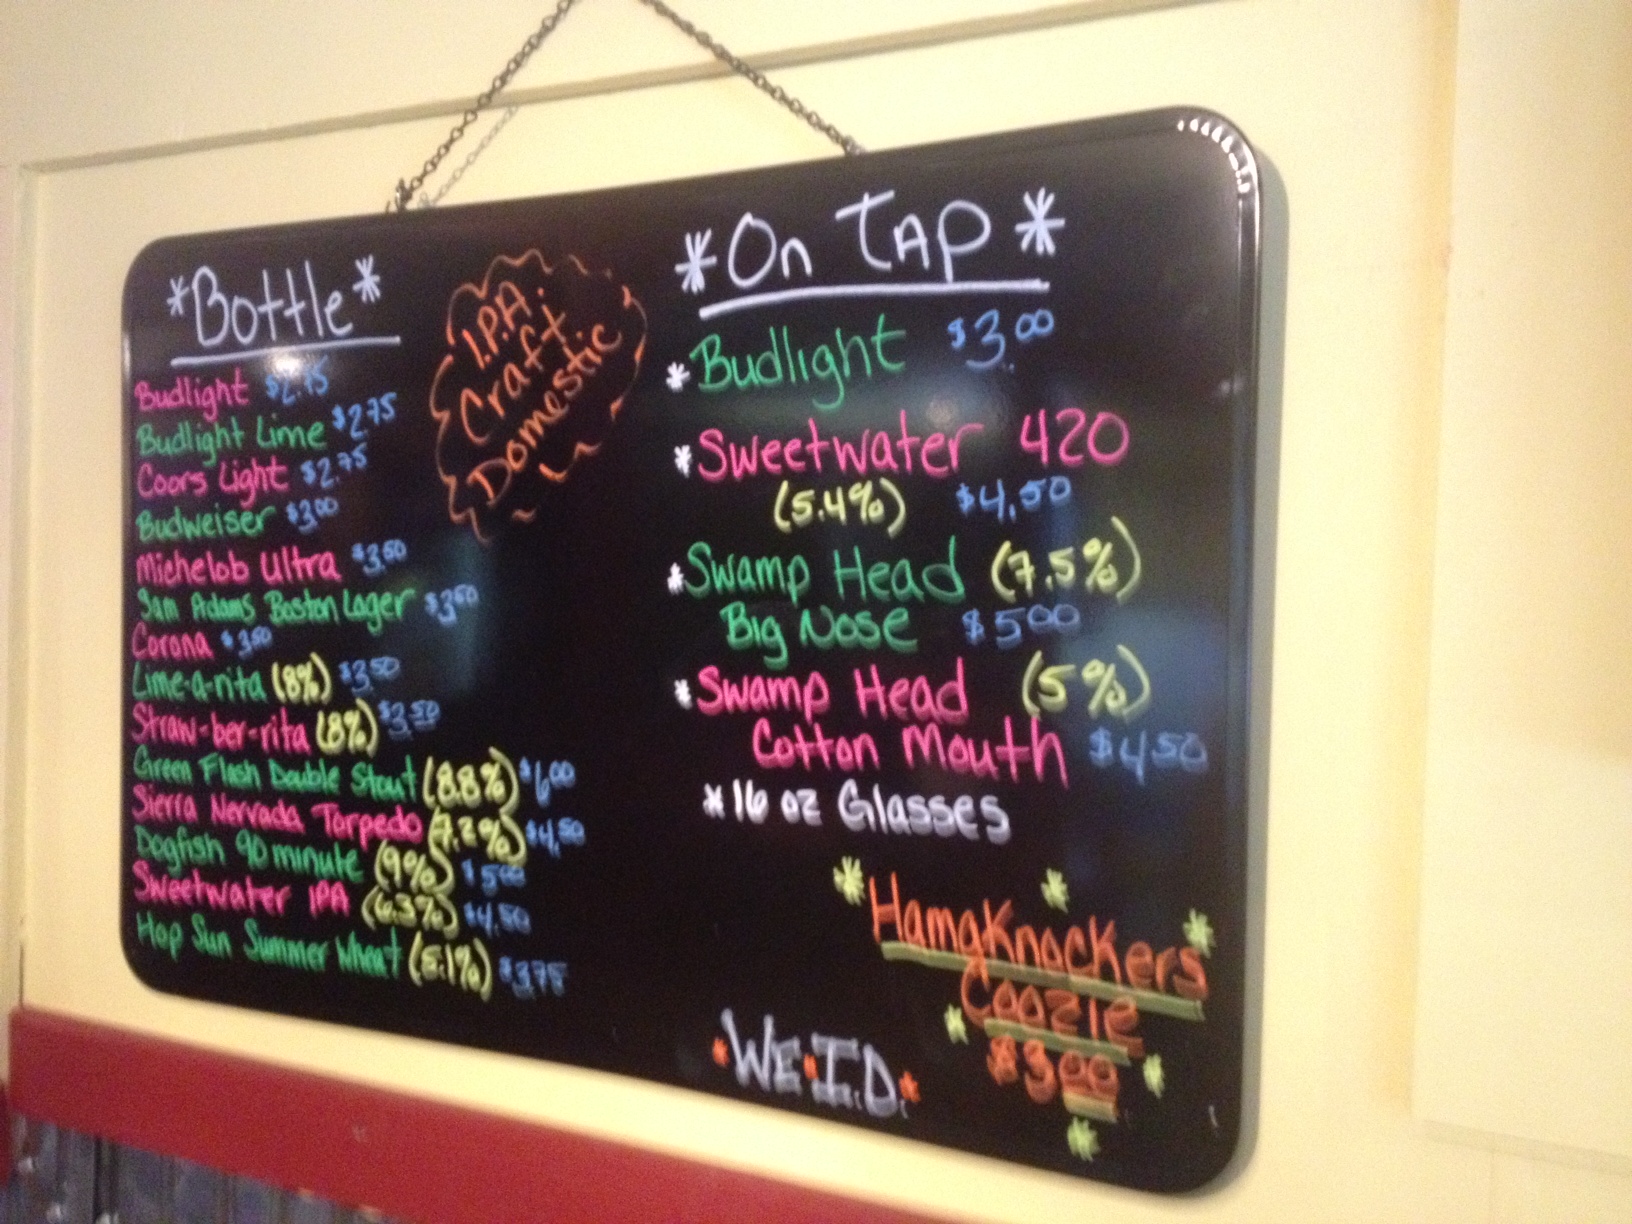 *Bottle*
Budlight $2.75
Budlight Lime $2.75
Coors Light $2.75
Budweiser $3.00
Michelob Ultra $3.50
Sam Adams Boston Lager $3.50
Corona $3.50
Lime-a-rita (8%) $3.50
Straw-ber-rita (8%) $3.50
Green Flash Double Stout (8.8%) $6.00
Sierra Nervada Torpedo (7.2%) $4.50
Dogfish 90 minute (9%) $5.00
Sweetwater IPA (6.3%) $4.50
Hop Sun Summer Wheat (5.1%) $3.75
I.P.A.
Craft
Domestic
*On TAP*
*Budlight $3.00
*Sweetwater 420
(5.4%) $4.50
*Swamp Head (7.5%)
Big Nose $5.00
*Swamp Head (5%)
Cotton Mouth $4.50
*16 oz Glasses
HamaKnockers
Coozie
$3.00
*WE*I.D.*